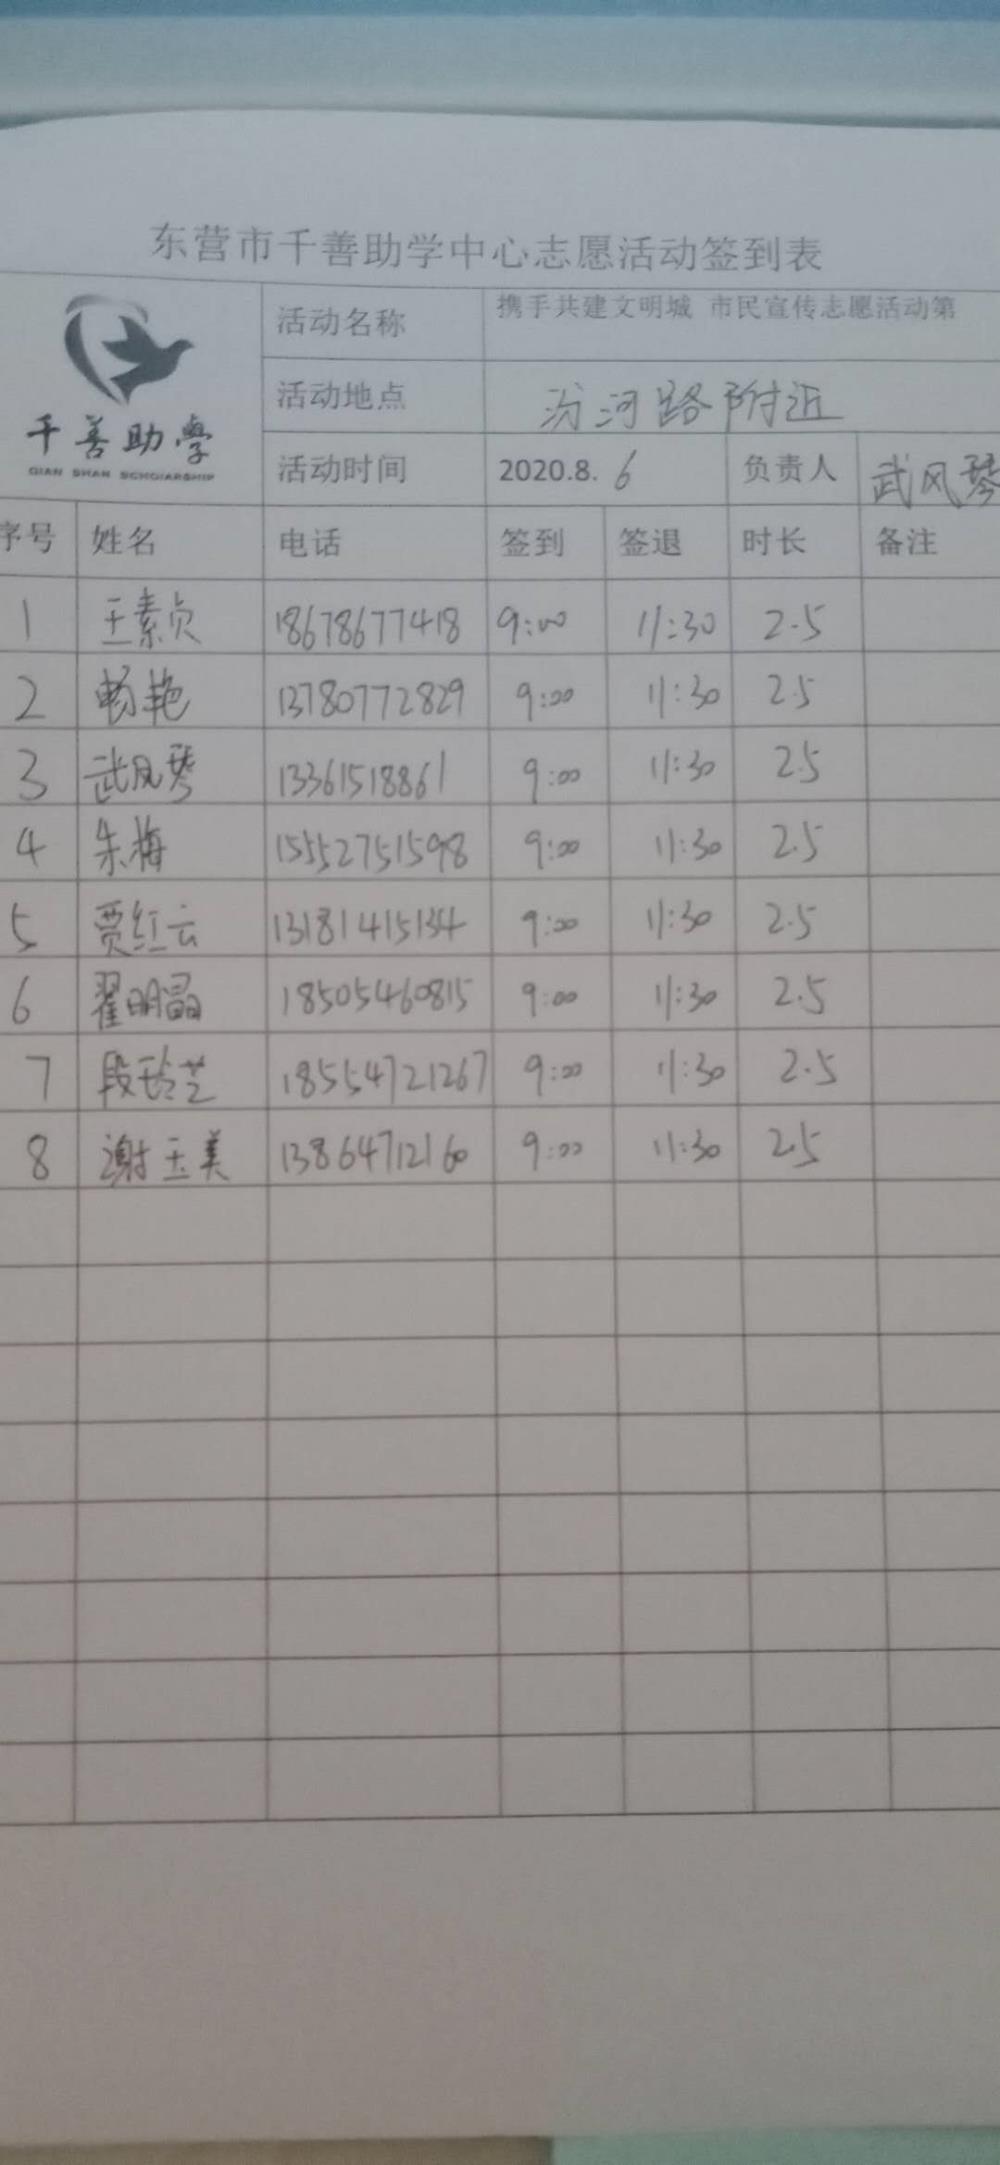 东营市千善助学中心志愿活动签到表
千善助學
QIAN SHAN SCHOLARSHIP
活动名称 携手共建文明城 市民宣传志愿活动第
活动地点 汾河路附近
活动时间 2020.8.6 负责人 武风琴
序号 姓名 电话 签到 签退 时长 备注
1 王素贞 18678677418 9:00 11:30 2.5
2 畅艳 13780772829 9:00 11:30 2.5
3 武风琴 13361518861 9:00 11:30 2.5
4 朱梅 15552751598 9:00 11:30 2.5
5 贾红云 13181415134 9:00 11:30 2.5
6 翟明晶 18505460815 9:00 11:30 2.5
7 段玲芝 18554721267 9:00 11:30 2.5
8 谢玉美 13864712160 9:00 11:30 2.5